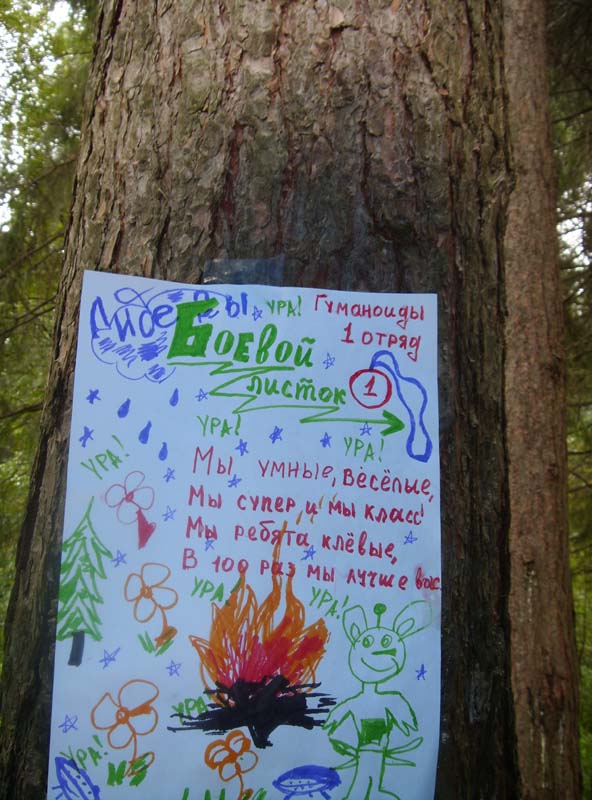 Лидеры
УРА!
Гуманоиды
1 отряд
Боевой
листок
1
УРА!
УРА!
УРА!
Мы, умные, весёлые,
Мы супер и мы класс!
Мы ребята клёвые,
В 100 раз мы лучше вас.
УРА!
УРА!
УРА!
УРА!